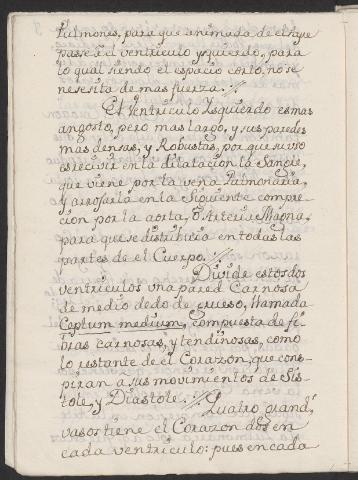 Pulmones, para que animada de el aÿre
passe â el ventriculo Yzquierdo, para
lo qual siendo el espacio corto, no se
nesesita de mas fuerza.
El Ventriculo Izquierdo es mas
angosto, pero mas largo, y sus paredes
mas densas, y Robustas, por que su uso
es recivir en la dilatacion la Sangre,
que viene por la vena Pulmonaria,
y arrojarla en la Siguiente compre-
cion por la aorta, ô Arteria Magna,
para que se distribuia en todas las
partes de el Cuerpo.
Divide estos dos
ventriculos una pared Carnosa
de medio dedo de grueso, llamada
Ceptum medium, compuesta de fi-
bras carnosas, y tendinosas, como
lo restante de el Corazon, que cons-
piran a sus movimientos de Sis-
tole, y Diastole. Quatro grand.
vasos tiene el Corazon dos en
cada ventriculo: pues en cada